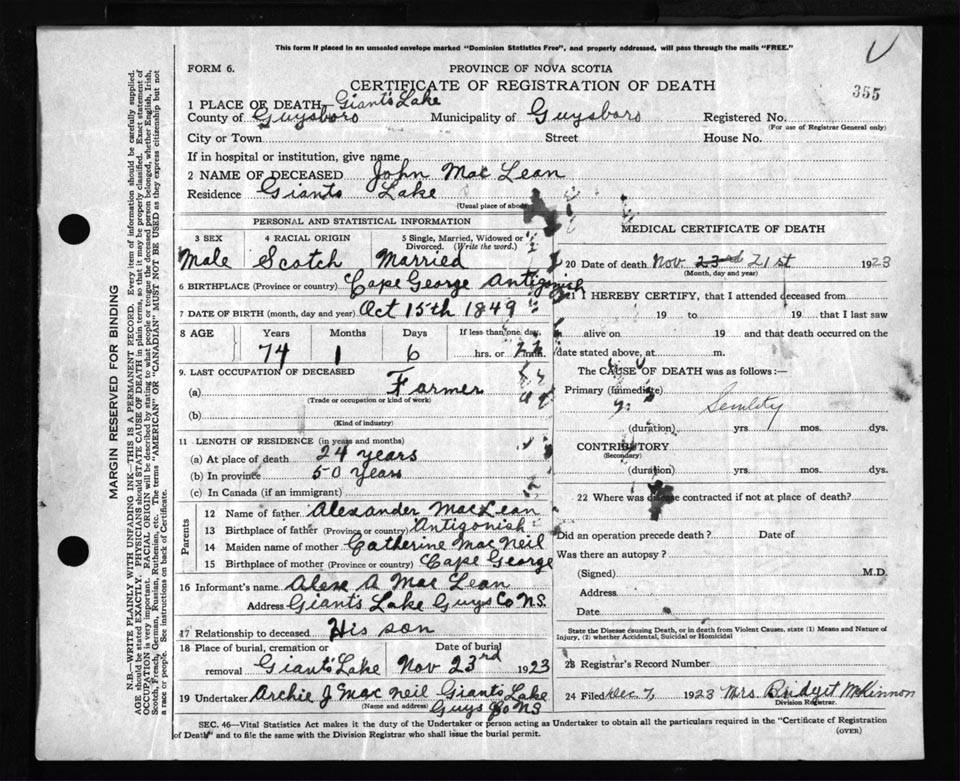 This form if placed in an unsealed envelope marked "Dominion Statistics Free", and properly addressed, will pass through the mails "FREE."
FORM 6.
PROVINCE OF NOVA SCOTIA
CERTIFICATE OF REGISTRATION OF DEATH
355
1 PLACE OF DEATH, Giants Lake
County of Guysboro Municipality of Guysboro Registered No.
(For use of Registrar General only)
City or Town Street House No.
If in hospital or institution, give name
2 NAME OF DECEASED John Mac Lean
Residence Giants Lake
(Usual place of abode)
PERSONAL AND STATISTICAL INFORMATION
3 SEX 4 RACIAL ORIGIN 5 Single, Married, Widowed or Divorced. (Write the word.)
Male Scotch Married
6 BIRTHPLACE (Province or country) Cape George Antigonish
7 DATE OF BIRTH (month, day and year) Oct 15th 1849
8 AGE Years Months Days If less than one day,
74 1 6 hrs. or min.
9. LAST OCCUPATION OF DECEASED
(a) Farmer
(Trade or occupation or kind of work)
(b)
(Kind of industry)
11 LENGTH OF RESIDENCE (in years and months)
(a) At place of death 24 years
(b) In province 50 years
(c) In Canada (if an immigrant)
Parents
12 Name of father Alexander MacLean
13 Birthplace of father (Province or country) Antigonish
14 Maiden name of mother Catherine MacNeil
15 Birthplace of mother (Province or country) Cape George
16 Informant's name Alex A Mac Lean
Address Giants Lake Guys Co N.S.
17 Relationship to deceased His son
18 Place of burial, cremation or Date of burial
removal Giants Lake Nov 23rd 1923
19 Undertaker Archie J Mac Neil Giants Lake
(Name and address) Guys Co NS
MEDICAL CERTIFICATE OF DEATH
20 Date of death Nov 23rd 21st 1923
(Month, day and year)
21 I HEREBY CERTIFY, that I attended deceased from
19 to 19 that I last saw
alive on 19 and that death occurred on the
date stated above, at m.
The CAUSE OF DEATH was as follows:—
Primary (Immediate)
Senility
(duration) yrs. mos. dys.
CONTRIBUTORY
(Secondary)
(duration) yrs. mos. dys.
22 Where was disease contracted if not at place of death?
Did an operation precede death? Date of
Was there an autopsy?
(Signed) M.D.
Address
Date
State the Disease causing Death, or in death from Violent Causes, state (1) Means and Nature of
Injury, (2) whether Accidental, Suicidal or Homicidal
23 Registrar's Record Number
24 Filed Dec. 7, 1923 Mrs. Bridget McKinnon
Division Registrar.
SEC. 46—Vital Statistics Act makes it the duty of the Undertaker or person acting as Undertaker to obtain all the particulars required in the "Certificate of Registration
of Death" and to file the same with the Division Registrar who shall issue the burial permit.
(OVER)
MARGIN RESERVED FOR BINDING
N.B.—WRITE PLAINLY WITH UNFADING INK—THIS IS A PERMANENT RECORD. Every item of information should be carefully supplied.
AGE should be stated EXACTLY. PHYSICIANS should STATE CAUSE OF DEATH in plain terms, so that it may be properly classified. Exact statement of
OCCUPATION is very important. RACIAL ORIGIN will be described by stating to what people or tongue the deceased person belonged, whether English, Irish,
Scotch, French, German, Russian, Ruthenian, etc. The terms "AMERICAN" or "CANADIAN" MUST NOT BE USED as they express citizenship but not
a race or people. See instructions on back of Certificate.